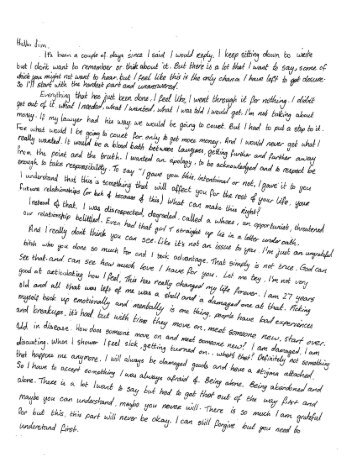 Hello Jim,
It's been a couple of days since I said I would reply. I keep sitting down to write
but I don't want to remember or think about it. But there is a lot that I want to say, some of
which you might not want to hear, but I feel like this is the only chance I have left to get closure.
So I'll start with the hardest part and unanswered.
Everything that has just been done, I feel like, I went through it for nothing. I didn't
get out of it what I needed, what I wanted, what I was told I would get. I'm not talking about
money. If my lawyer had his way we would be going to court. But I had to put a stop to it.
For what would I be going to court for only to get more money. And I would never get what I
really wanted. It would be a blood bath between lawyers, getting further and further away
from the point and the truth. I wanted an apology, to be acknowledged and to respect be
enough to take responsibility. To say "I gave you this, intentional or not, I gave it to you
I understand that this is something that will affect you for the rest of your life, your
future relationships (or lack of because of this). What can make this right?
Instead of that, I was disrespected, degraded, called a whore, an opportunist, threatened
our relationship belittled. Even had that girl straight up lie in a letter under oath.
And I really don't think you can see. Like it's not an issue to you. I'm just an ungrateful
bitch who you done so much for and I took advantage. That simply is not true. God can
see that and can see how much love I have for you. Let me try, I'm not very
good at articulating how I feel. This has really changed my life forever. I am 27 years
old and all that was left of me was a shell and a damaged one at that. Picking
myself back up emotionally and mentally is one thing, people have bad experiences
and breakups, it's hard but with time they move on, meet someone new, start over.
Add in disease. How does someone move on and meet someone new? I am damaged, I am
disgusting. When I shower I feel sick, getting turned on.. what's that? Definitely not something
that happens me anymore. I will always be damaged goods and have a stigma attached.
So I have to accept something I was always afraid of. Being alone. Being abandoned and
alone. There is a lot I want to say but had to get that out of the way first and
maybe you can understand, maybe you never will. There is so much I am grateful
for but this, this part will never be okay. I can still forgive but you need to
understand first.